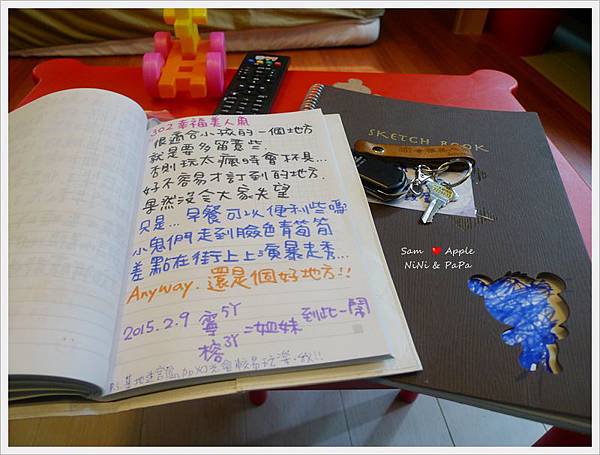 302 幸福美人魚
很適合小孩的一個地方
就是要多留意些.
否則玩太瘋時會杯具...
好不容易才訂到的地方.
果然沒令大家失望
只是... 早餐可以便利些嗎
小鬼們走到臉色青筍筍
差點在街上上演暴走秀...
Anyway. 還是個好地方!!
2015.2.9 寧 5Y
榕 3Y 二姐妹 到此一鬧
SKETCH BOOK
Sam ❤ Apple
NiNi & PaPa